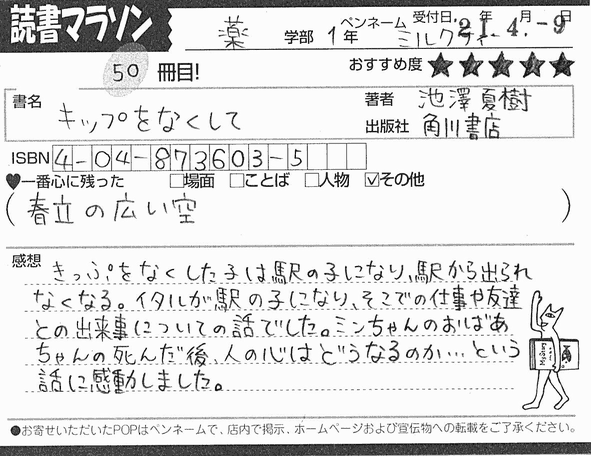 読書マラソン
薬 学部 1年 ペンネーム ミルクティー 受付日 '21年 4.月-9日
50 冊目!
おすすめ度 ★★★★★
書名 キップをなくして
著者 池澤夏樹
出版社 角川書店
ISBN 4-04-873603-5
♥一番心に残った □場面 □ことば □人物 ☑その他
(春立の広い空)
感想
きっぷをなくした子は駅の子になり、駅から出られ
なくなる。イタルが駅の子になり、そこでの仕事や友達
との出来事についての話でした。ミンちゃんのおばあ
ちゃんの死んだ後、人の心はどうなるのか…という
話に感動しました。
●お寄せいただいたPOPはペンネームで、店内で掲示、ホームページおよび宣伝物への転載をご了承ください。